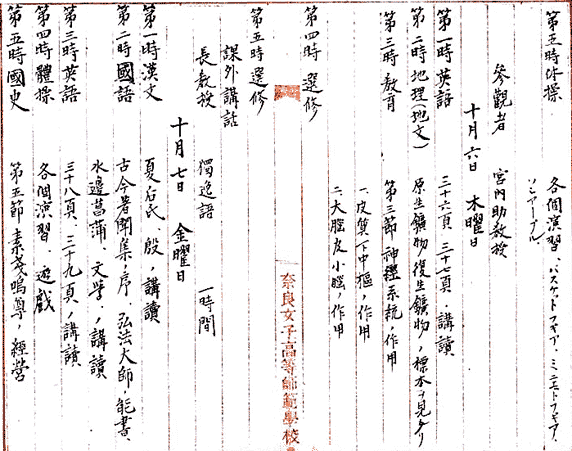 第五時体操 各個演習、バスケットフォア、ミニエトフォア、
ソシアーブル
參觀者 宮内助教授
十月六日 木曜日
第一時英語 三十六頁 三十七頁、講讀
第二時地理(地文) 原生鑛物復生鑛物ノ標本ヲ見タリ
第三時教育 第三節神經系統ノ作用
一、皮質下中樞ノ作用
二、大腦皮小腦ノ作用
第四時 選修
奈良女子高等師範學校
第五時選修
課外講話
長教授 獨逸語 一時間
十月七日 金曜日
第一時漢文 夏后氏、殷ノ講讀
第二時國語 古今著聞集ノ序、弘法大師ノ能書、
水邊菖蒲、文學ノ講讀
第三時英語 三十八頁、三十九頁ノ講讀
第四時體操 各個演習、遊戯
第五時國史 第五節 素戔嗚尊ノ經營